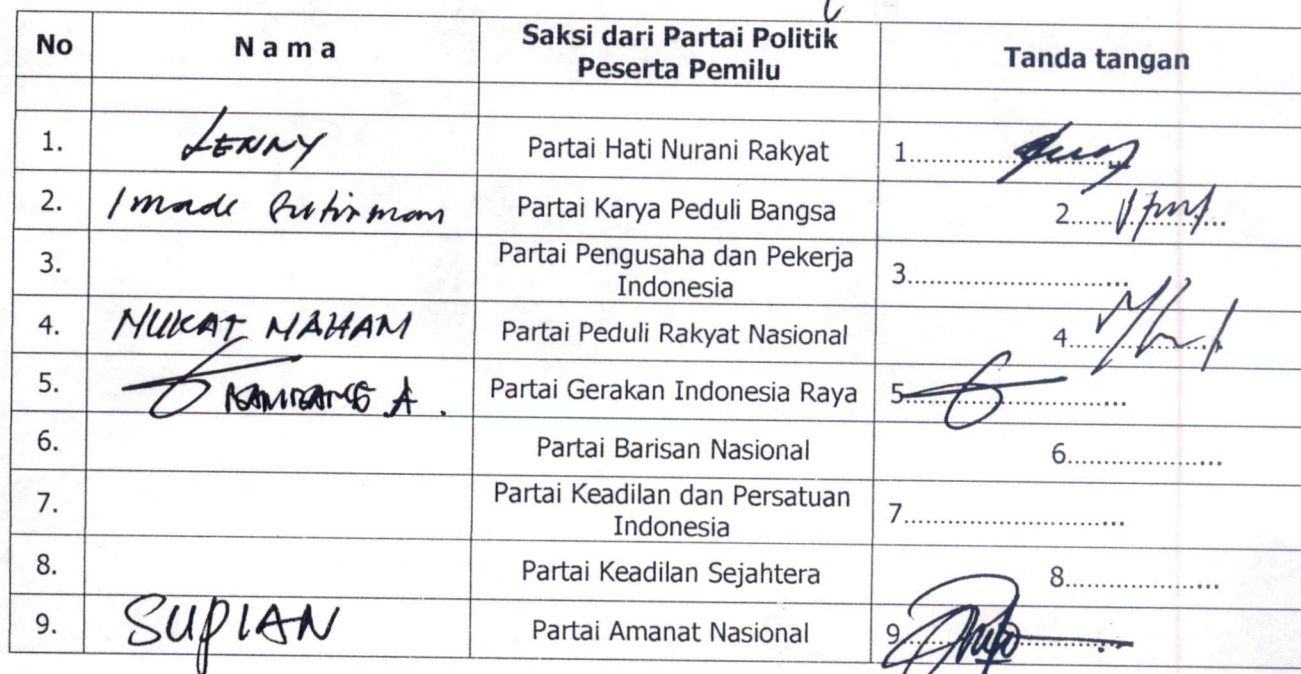 No N a m a Saksi dari Partai Politik Peserta Pemilu Tanda tangan
1. LENNY Partai Hati Nurani Rakyat 1.
2. I made Partai Karya Peduli Bangsa 2.
3. Partai Pengusaha dan Pekerja Indonesia 3.
4. MUKAT MAHAM Partai Peduli Rakyat Nasional 4.
5. BAMBANG A. Partai Gerakan Indonesia Raya 5
6. Partai Barisan Nasional 6.
7. Partai Keadilan dan Persatuan Indonesia 7.
8. Partai Keadilan Sejahtera 8.
9. SUPIAN Partai Amanat Nasional 9.